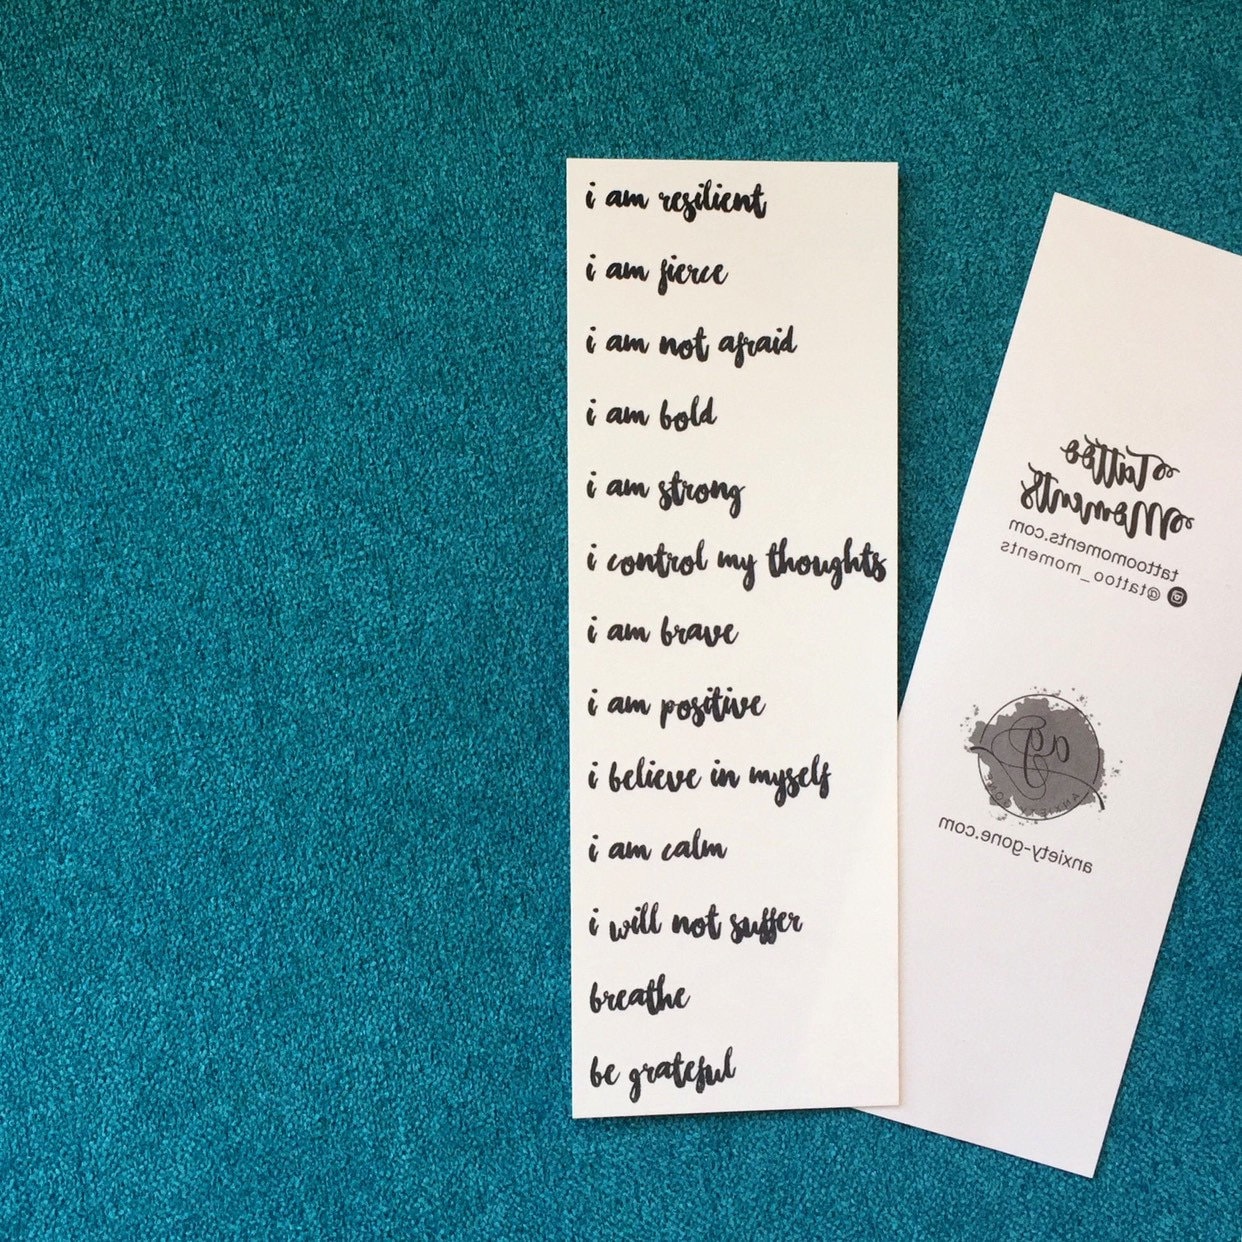 i am resilient
i am fierce
i am not afraid
i am bold
i am strong
i control my thoughts
i am brave
i am positive
i believe in myself
i am calm
i will not suffer
breathe
be grateful
Tattoo
Moments
tattoomoments.com
@tattoo_moments
ag
ANXIETY GONE
anxiety-gone.com